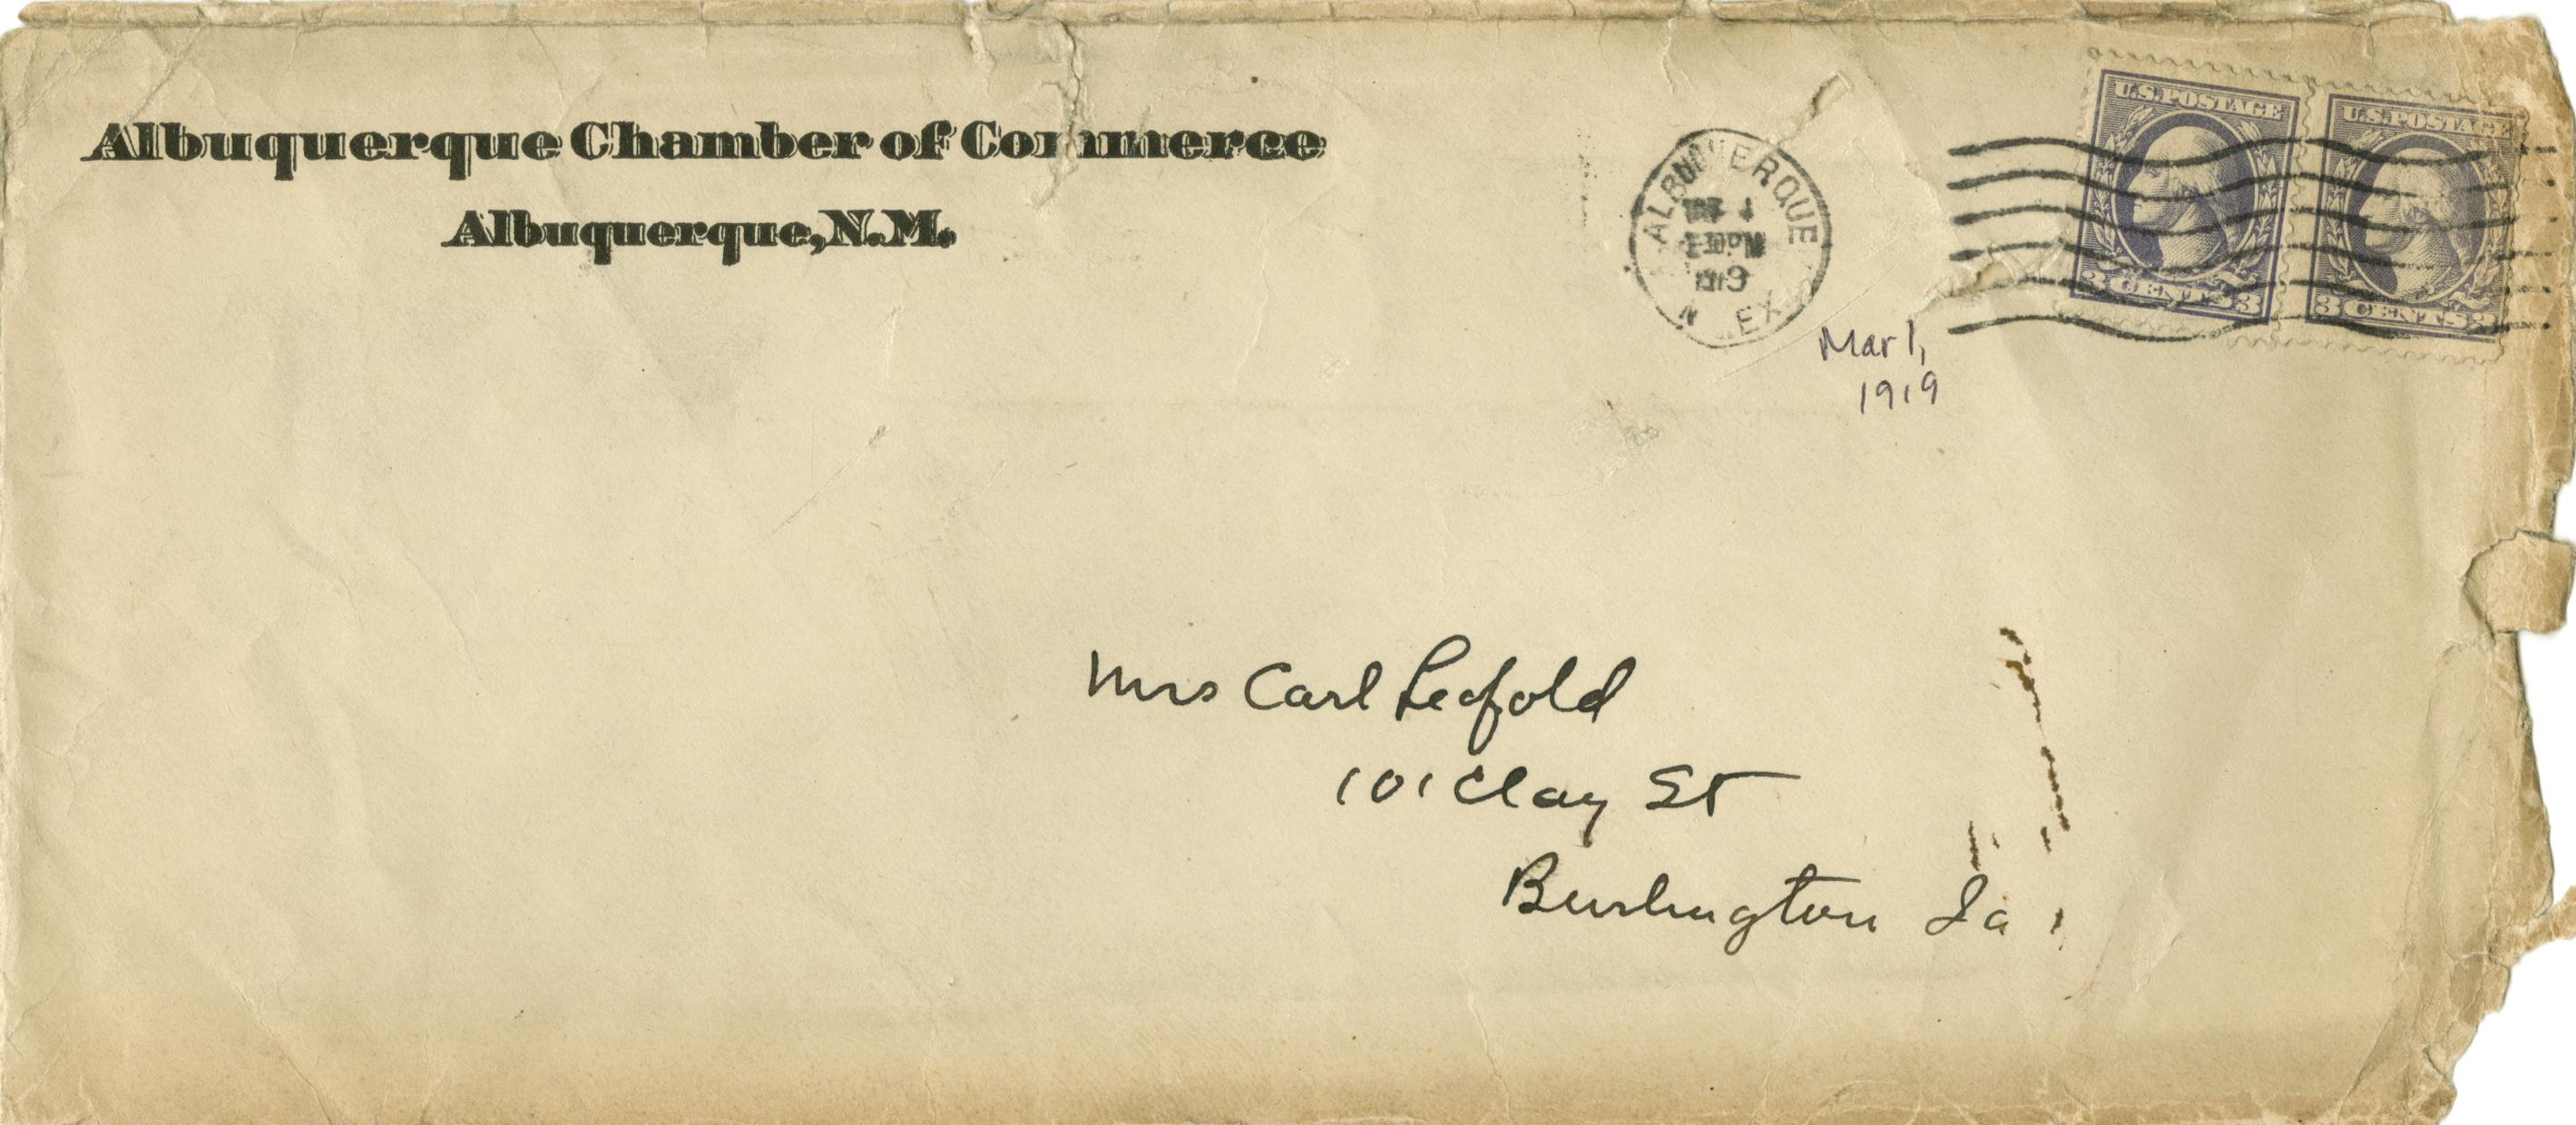 Albuquerque Chamber of Commerce
Albuquerque, N.M.
ALBUQUERQUE
N EX
Mar 1,
1919
U.S. POSTAGE
3 CENTS 3
U.S. POSTAGE
3 CENTS 3
Mrs Carl Leopold
101 Clay St
Burlington Ia